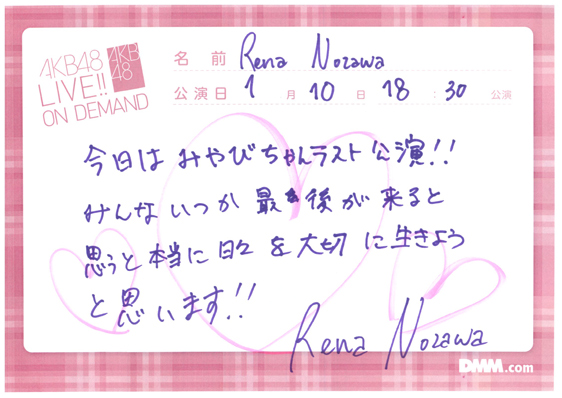 AKB48
LIVE!!
ON DEMAND
AKB
48
名 前 Rena Nozawa
公演日 1 月 10 日 18 : 30 公演
今日は みやびちゃんラスト 公演!!
みんな いつか 最後が 来ると
思うと 本当に 日々 を 大切 に 生きよう
と 思います!!
Rena Nozawa
DMM.com